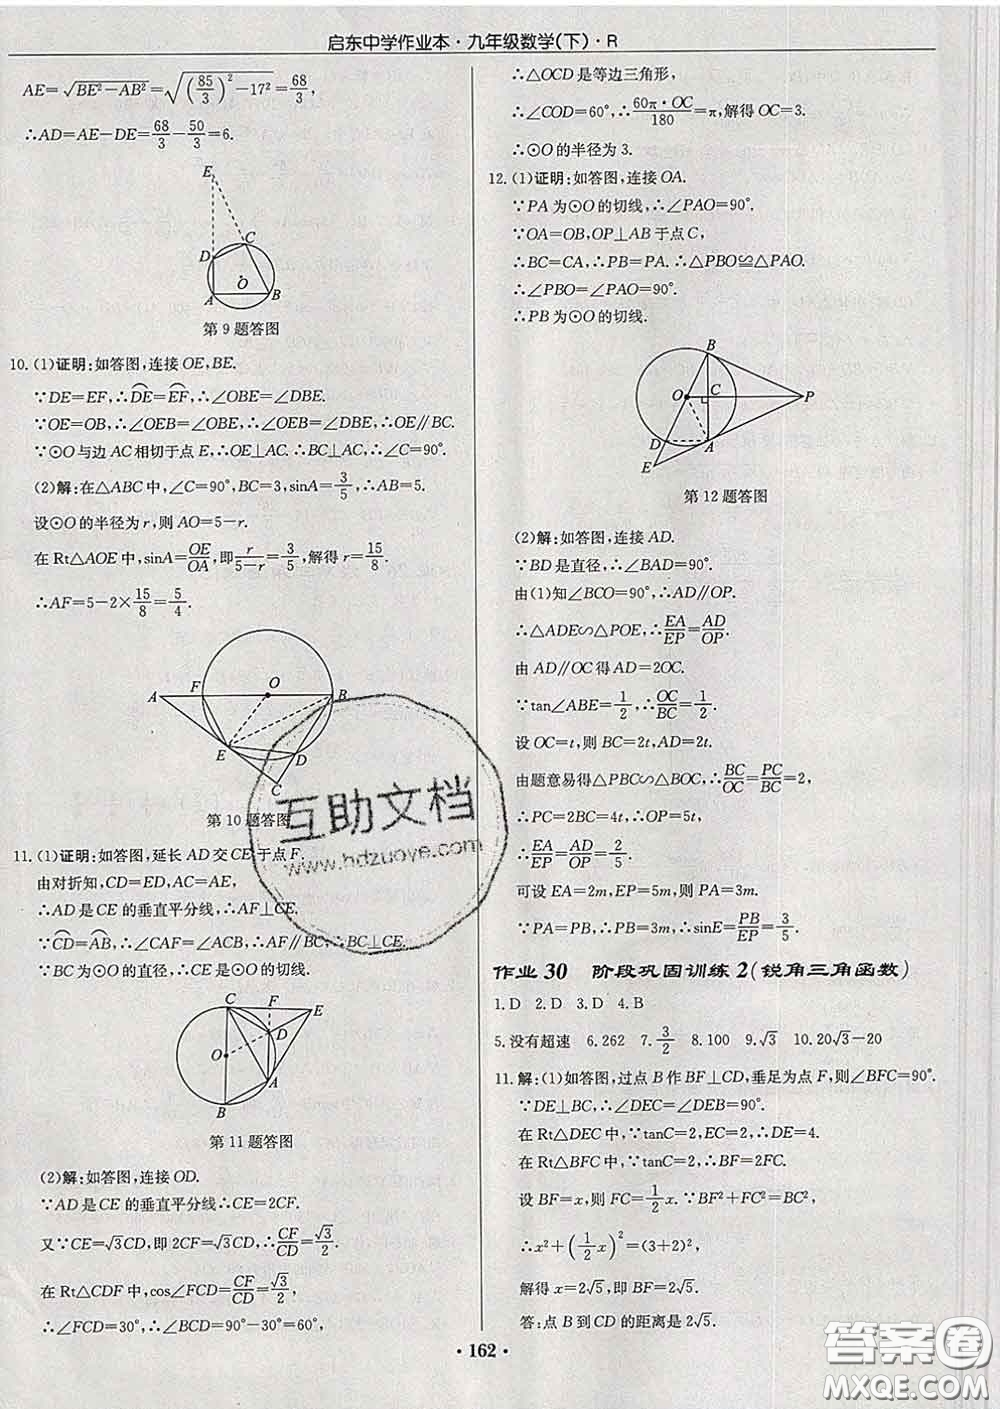 启东中学作业本·九年级数学(下)·R
AE=√(BE²-AB²)=√((85/3)²-17²)=68/3,
∴AD=AE-DE=68/3-50/3=6.
E
C
D
O
A
B
第9题答图
10.(1)证明:如答图,连接OE,BE.
∵DE=EF,∴D͡E=E͡F,∴∠OBE=∠DBE.
∵OE=OB,∴∠OEB=∠OBE,∴∠OEB=∠DBE,∴OE∥BC.
∵⊙O与边AC相切于点E,∴OE⊥AC.∴BC⊥AC,∴∠C=90°.
(2)解:在△ABC中,∠C=90°,BC=3,sinA=3/5,∴AB=5.
设⊙O的半径为r,则AO=5-r.
在Rt△AOE中,sinA=OE/OA,即r/(5-r)=3/5,解得r=15/8.
∴AF=5-2×15/8=5/4.
A
F
O
B
E
D
C
第10题答图
11.(1)证明:如答图,延长AD交CE于点F.
由对折知,CD=ED,AC=AE,
∴AD是CE的垂直平分线,∴AF⊥CE.
∵C͡D=A͡B,∴∠CAF=∠ACB,∴AF∥BC,∴BC⊥CE.
∵BC为⊙O的直径,∴CE是⊙O的切线.
C
F
E
D
O
A
B
第11题答图
(2)解:如答图,连接OD.
∵AD是CE的垂直平分线∴CE=2CF.
又∵CE=√3CD,即2CF=√3CD,∴CF/CD=√3/2.
在Rt△CDF中,cos∠FCD=CF/CD=√3/2,
∴∠FCD=30°,∴∠BCD=90°-30°=60°,
∴△OCD是等边三角形,
∴∠COD=60°,∴60π·OC/180=π,解得OC=3.
∴⊙O的半径为3.
12.(1)证明:如答图,连接OA.
∵PA为⊙O的切线,∴∠PAO=90°.
∵OA=OB,OP⊥AB于点C,
∴BC=CA,∴PB=PA.∴△PBO≌△PAO.
∴∠PBO=∠PAO=90°.
∴PB为⊙O的切线.
B
O
C
P
D
A
E
第12题答图
(2)解:如答图,连接AD.
∵BD是直径,∴∠BAD=90°.
由(1)知∠BCO=90°,∴AD∥OP.
∴△ADE∽△POE,∴EA/EP=AD/OP.
由AD∥OC得AD=2OC.
∵tan∠ABE=1/2,∴OC/BC=1/2.
设OC=t,则BC=2t,AD=2t.
由题意易得△PBC∽△BOC,∴BC/OC=PC/BC=2,
∴PC=2BC=4t,OP=5t,
∴EA/EP=AD/OP=2/5.
可设EA=2m,EP=5m,则PA=3m.
∵PA=PB,∴PB=3m,∴sinE=PB/EP=3/5.
作业30 阶段巩固训练2(锐角三角函数)
1.D 2.D 3.D 4.B
5.没有超速 6.262 7.3/2 8.100 9.√3 10.20√3-20
11.解:(1)如答图,过点B作BF⊥CD,垂足为点F,则∠BFC=90°.
∵DE⊥BC,∴∠DEC=∠DEB=90°.
在Rt△DEC中,∵tanC=2,EC=2,∴DE=4.
在Rt△BFC中,∵tanC=2,∴BF=2FC.
设BF=x,则FC=1/2x.∵BF²+FC²=BC²,
∴x²+(1/2x)²=(3+2)²,
解得x=2√5,即BF=2√5.
答:点B到CD的距离是2√5.
·162·
互助文档
www.hdzuoye.com
答案圈
MXQE.COM